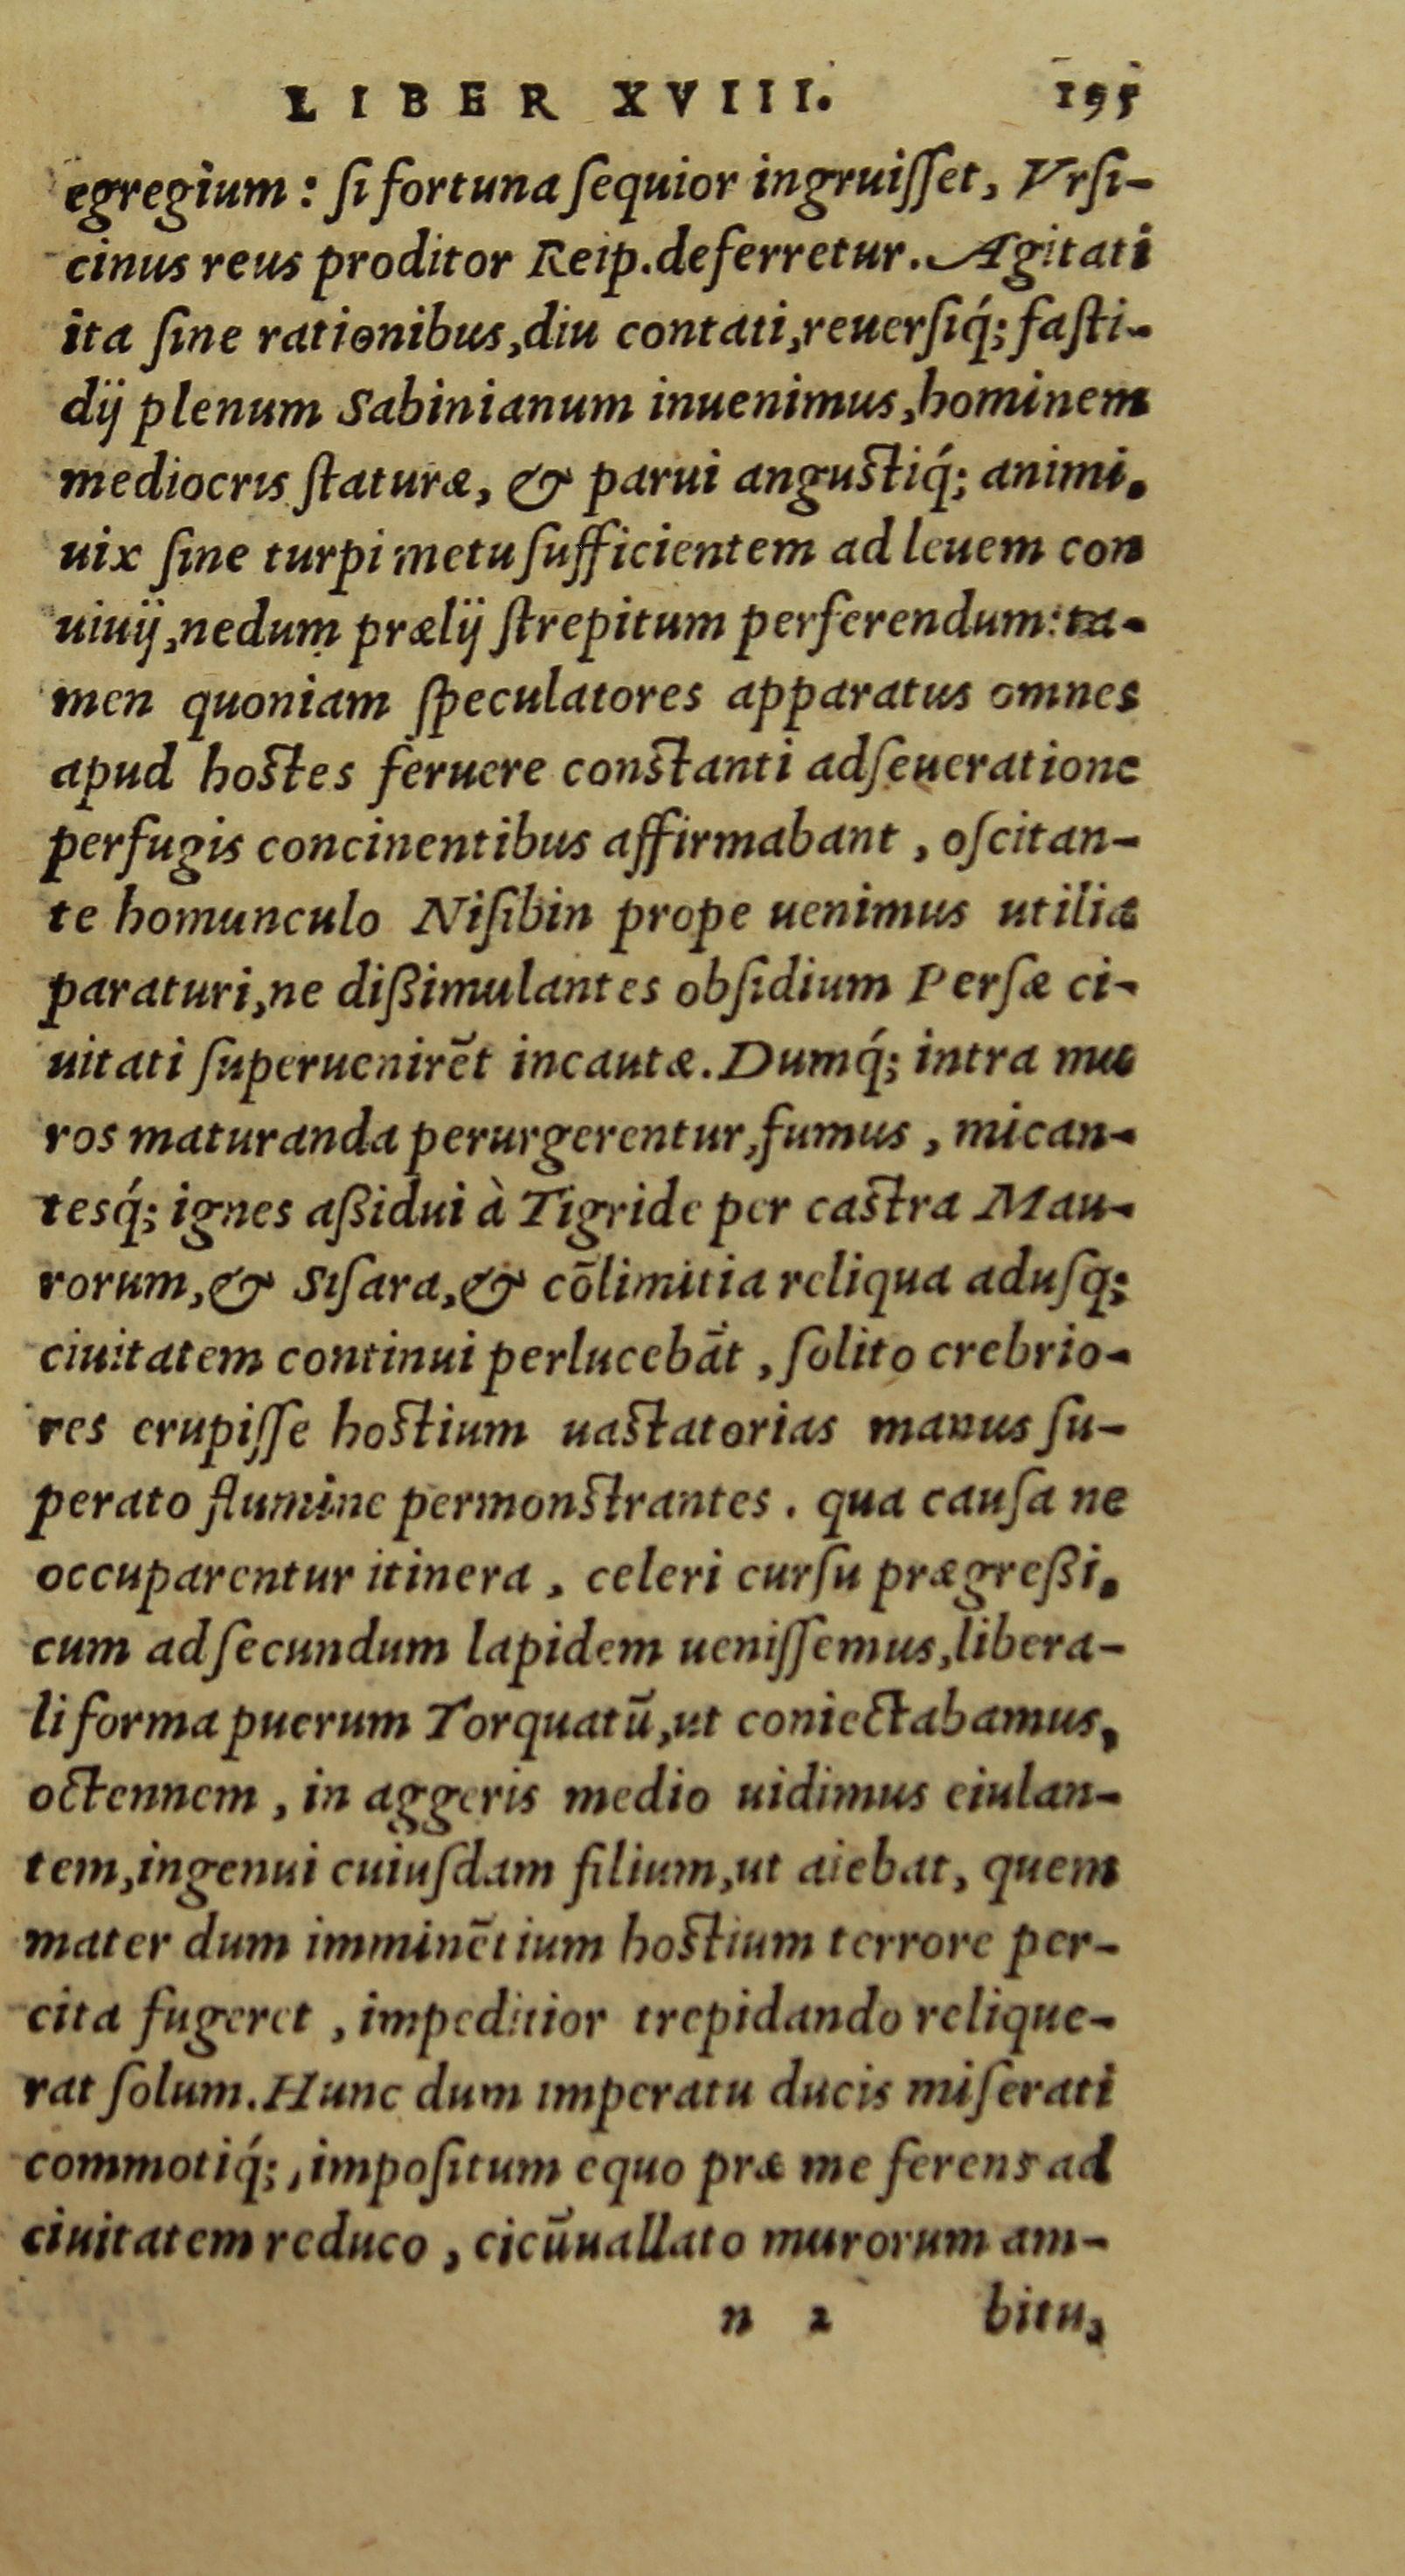 LIBER XVIII. 195
egregium: ſi fortuna ſequior ingruiſſet, Vrſi-
cinus reus proditor Reip. deferretur. Agitati
ita ſine rationibus, diu contati, reuerſiq́; faſti-
dij plenum Sabinianum inuenimus, hominem
mediocris ſtaturæ, & parui anguſtiq́; animi.
uix ſine turpi metu ſufficientem ad leuem con
uiuij, nedum prælij ſtrepitum perferendum: ta-
men quoniam ſpeculatores apparatus omnes
apud hoſtes feruere conſtanti adſeueratione
perfugis concinentibus affirmabant, oſcitan-
te homunculo Niſibin prope uenimus utilia
paraturi, ne dißimulantes obſidium Perſæ ci-
uitati ſuperuenirēt incautæ. Dumq́; intra mu
ros maturanda perurgerentur, fumus, mican-
tesq́; ignes aßidui à Tigride per caſtra Mau-
rorum, & Siſara, & cōlimitia reliqua aduſq;
ciuitatem continui perlucebāt, ſolito crebrio-
res erupiſſe hoſtium uaſtatorias manus ſu-
perato flumine permonſtrantes. qua cauſa ne
occuparentur itinera, celeri curſu prægreßi.
cum ad ſecundum lapidem ueniſſemus, libera-
li forma puerum Torquatū, ut coniectabamus,
octennem, in aggeris medio uidimus eiulan-
tem, ingenui cuiuſdam filium, ut aiebat, quem
mater dum imminētium hoſtium terrore per-
cita fugeret, impeditior trepidando relique-
rat ſolum. Hunc dum imperatu ducis miſerati
commotiq́;, impoſitum equo præ me ferens ad
ciuitatem reduco, cicūuallato murorum am-
n 2 bitu,